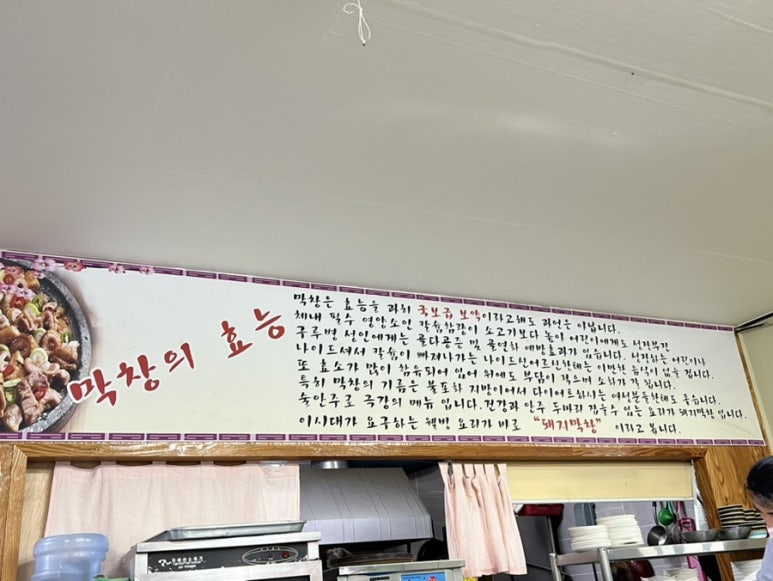 막창의 효능
막창은 효능을 과히 국보급 보약이라고해도 과언은 아닙니다.
체내 필수 영양소인 칼슘함량이 소고기보다 높아 어린이에게도 성장발전
골루병 성인에게는 골다공증 및 골연화 예방효과가 있습니다. 성장하는 어린이나
나이드셔서 칼슘이 빠져나가는 나이드신어르신한테는 이만한 음식이 없을 겁니다.
또 효소가 많이 함유되어 있어 위에도 부담이 적으며 소화가 잘 됩니다.
특히 막창의 기름은 불포화 지방이어서 다이어트하시는 여성분들한테도 좋습니다.
술안주로 극강의 메뉴 입니다. 건강과 안주 두마리 잡을수 있는 요리가 돼지막창 입니다.
이시대가 요구하는 웰빙 요리가 바로 "돼지막창" 이라고 봅니다.